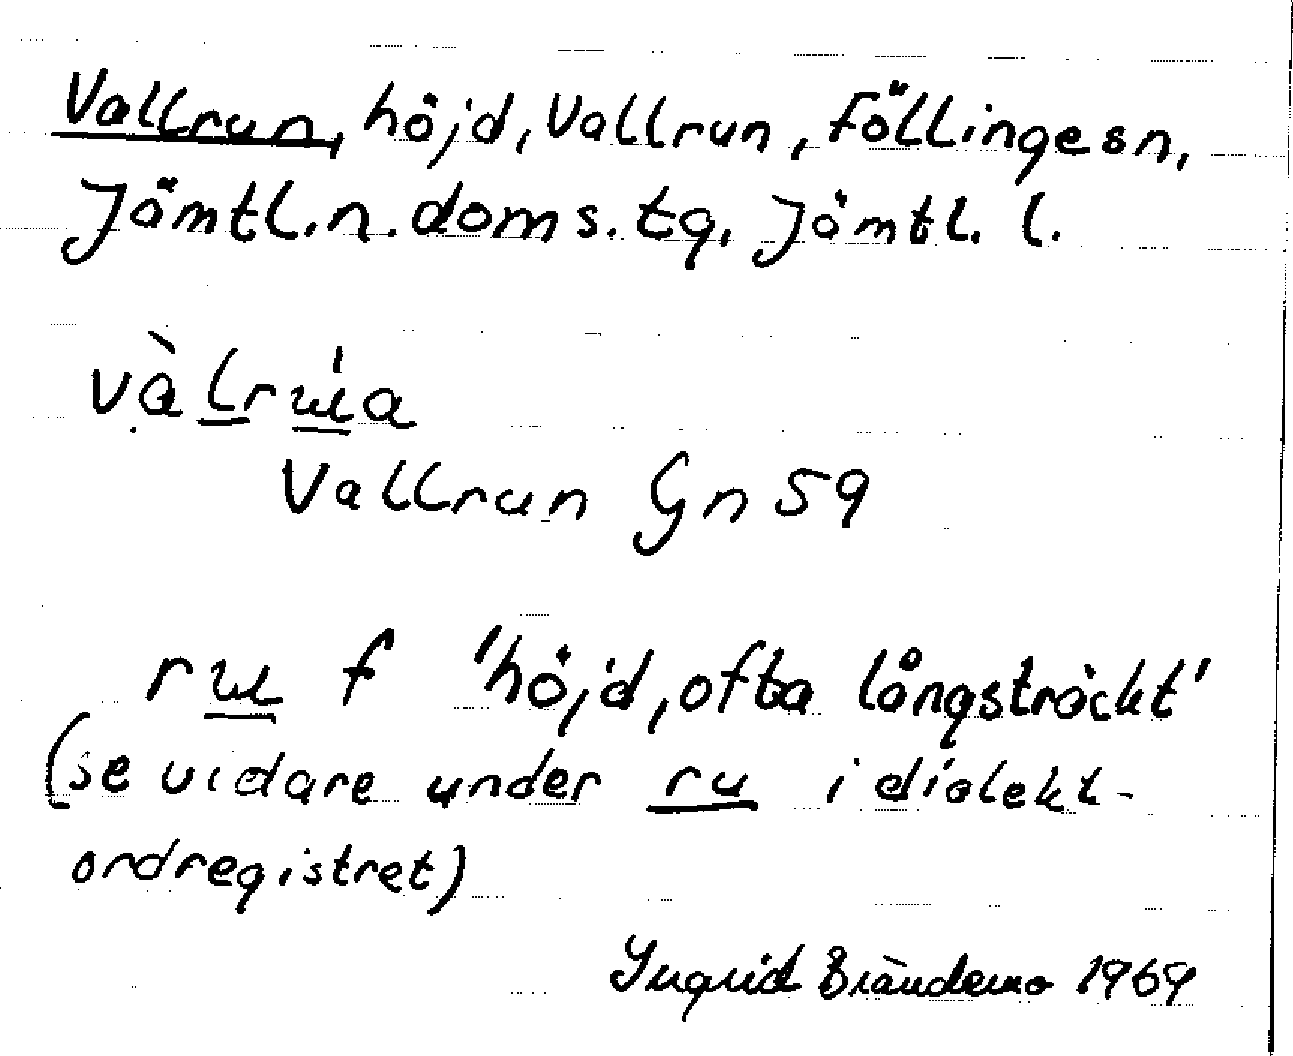 Vallrun, höjd, Vallrun, Föllinge sn,
Jämtl. n. doms. tg, Jämtl. l.
Vallrun Gn 59
f 'höjd, ofta långsträckt'
(se vidare under ru i dialekt-
ordregistret)
Ingrid Brändemo 1969